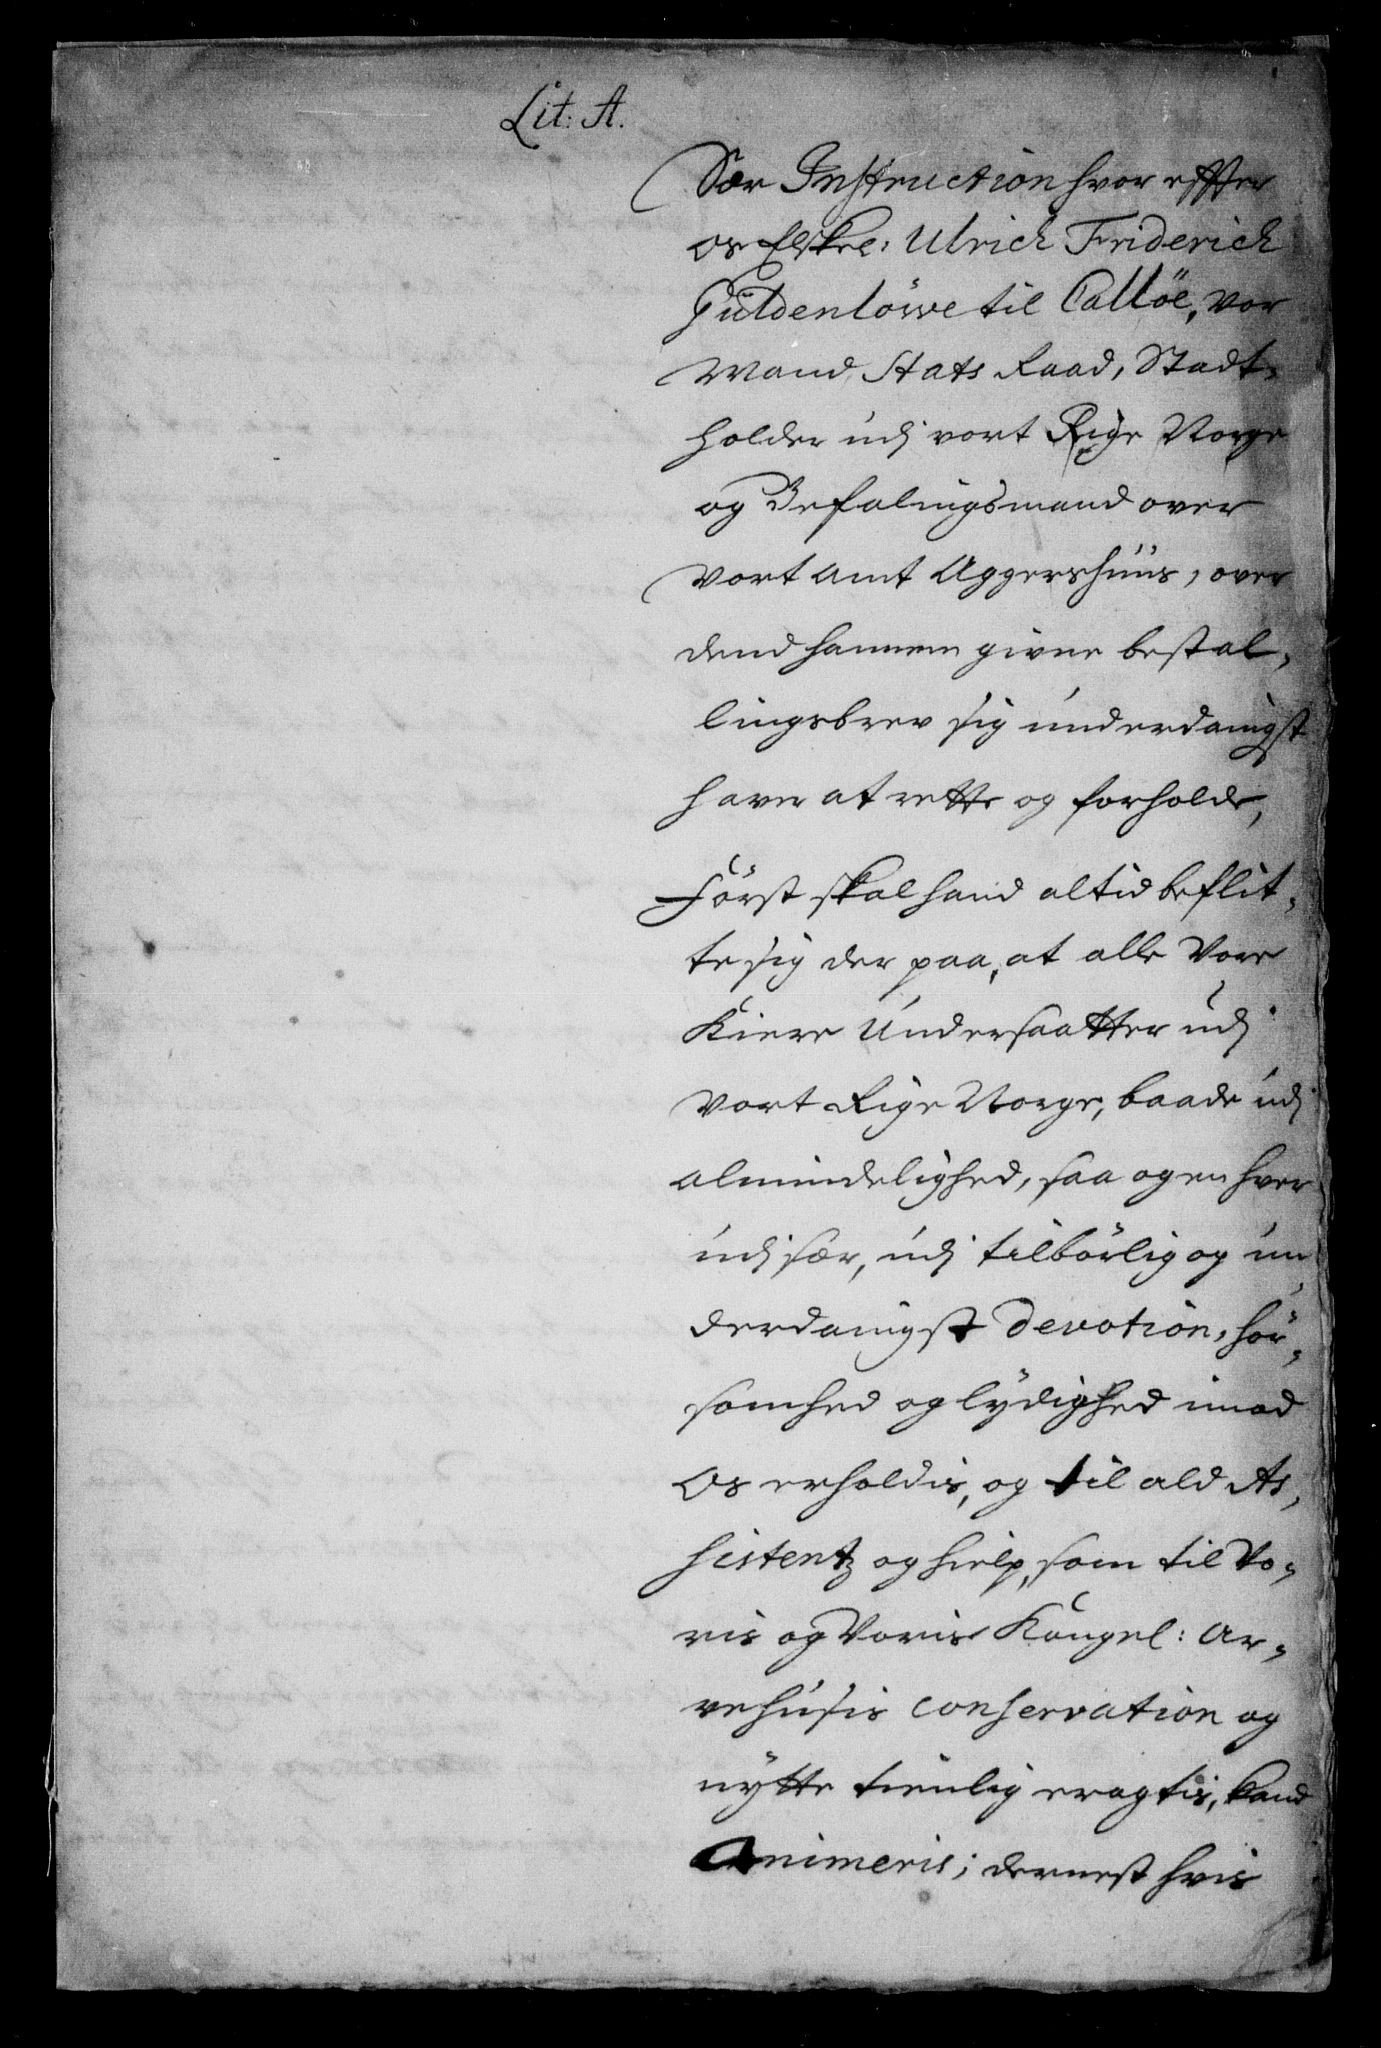 Lit: A.
Sær Instruction hvor effter
os Elskel: Ulrich Friderich
Güldenlöwe til Callöe, vor
Mand, Stats Raad, Stadt-
holder udj vort Rige Norge
og Befalingsmand over
vort Amt Aggershuus, over
dend hannem givne bestal-
lingsbrev sig underdanigst
haver at rette og forholde,
Först skal hand altid beflit-
te sig der paa, at alle Vore
Kiere Undersaatter udj
vort Rige Norge, baade udj
almindelighed, saa og en hver
udj sær, udj tilbörlig og un-
derdanigst devotion, hör-
somhed og lydighed imod
Os erholdis, og til ald As-
sistentz og hielp, som til Vo-
ris og Voris Kongel: Ar-
vehusis conservation og
nytte tienlig eragtis, kand
Animeris; dernest hvis